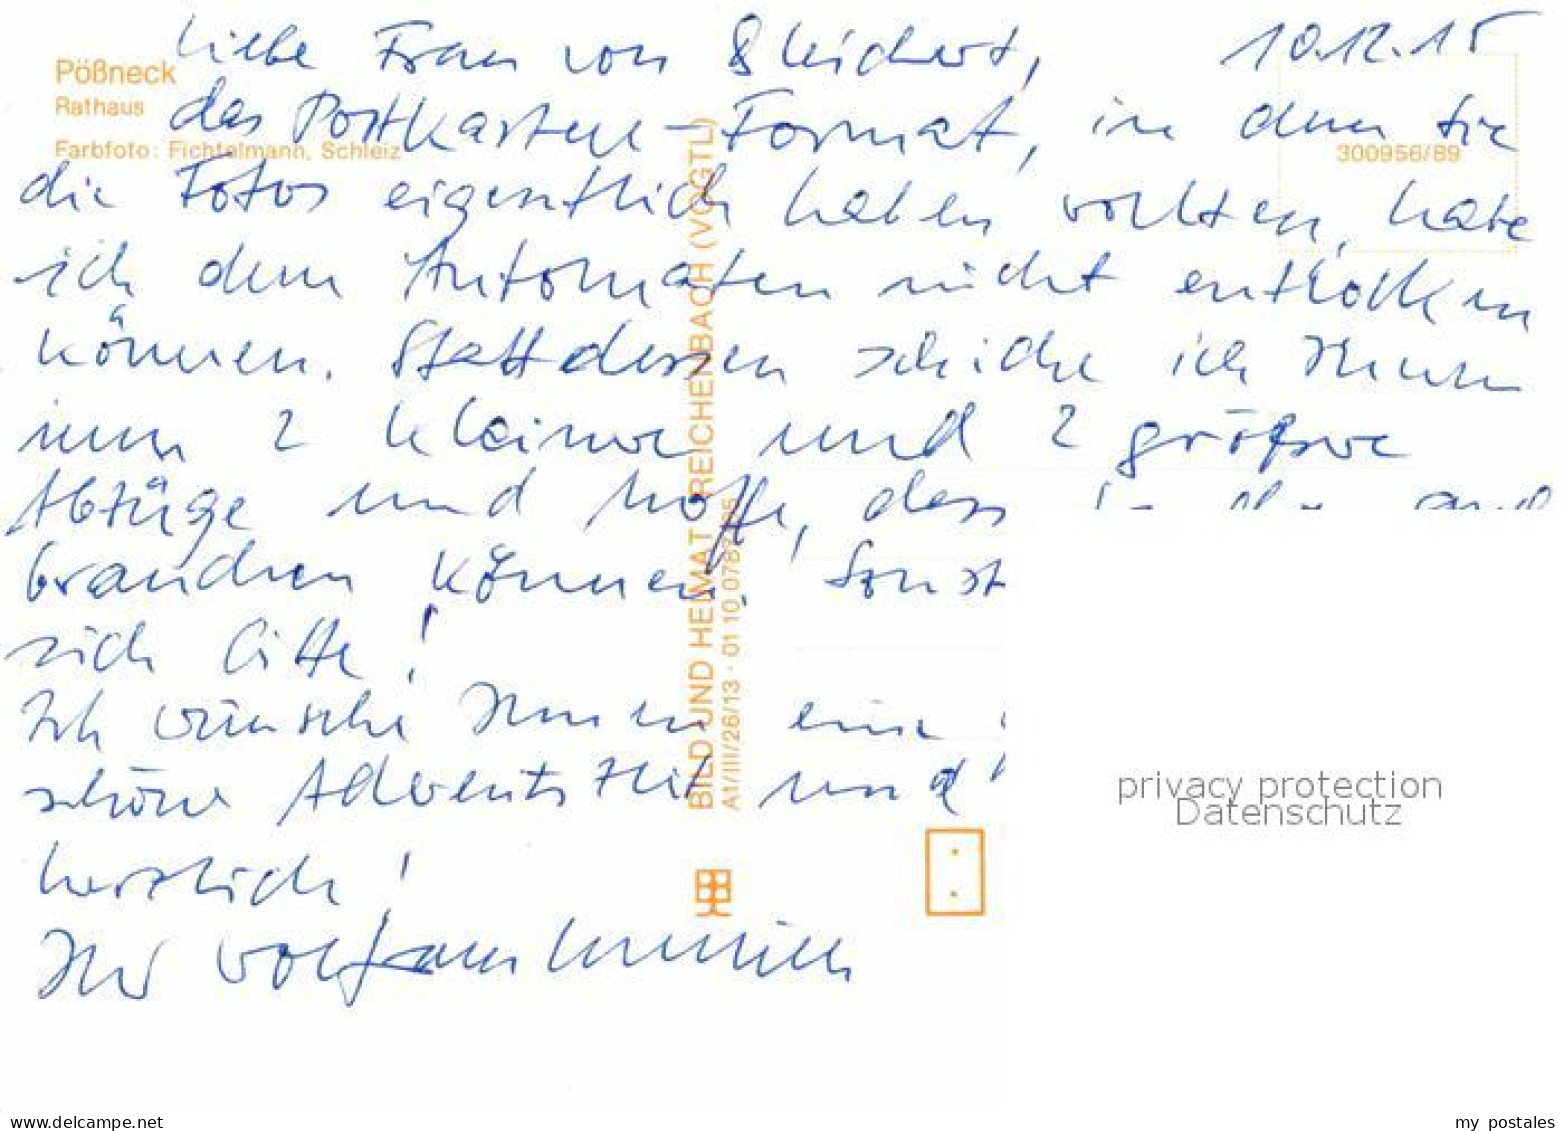 Liebe Frau von Bleichert, 10.12.15
Pößneck
Rathaus
das Postkarten-Format, in dem Sie
Farbfoto: Fichtelmann, Schleiz
300956/89
die Fotos eigentlich haben wollten, habe
ich dem Automaten nicht entlocken
können. Stattdessen schicke ich Ihnen
nun 2 kleinere und 2 größere
Abzüge und hoffe, dass
brauchen können! Sonst
sich bitte!
Ich wünsche Ihnen eine
schöne Adventszeit und
herzlich!
Ihr Wolfram
BILD UND HEIMAT REICHENBACH (VOGTL)
A1/III/26/13 · 01 10 0787
privacy protection
Datenschutz
www.delcampe.net
my_postales